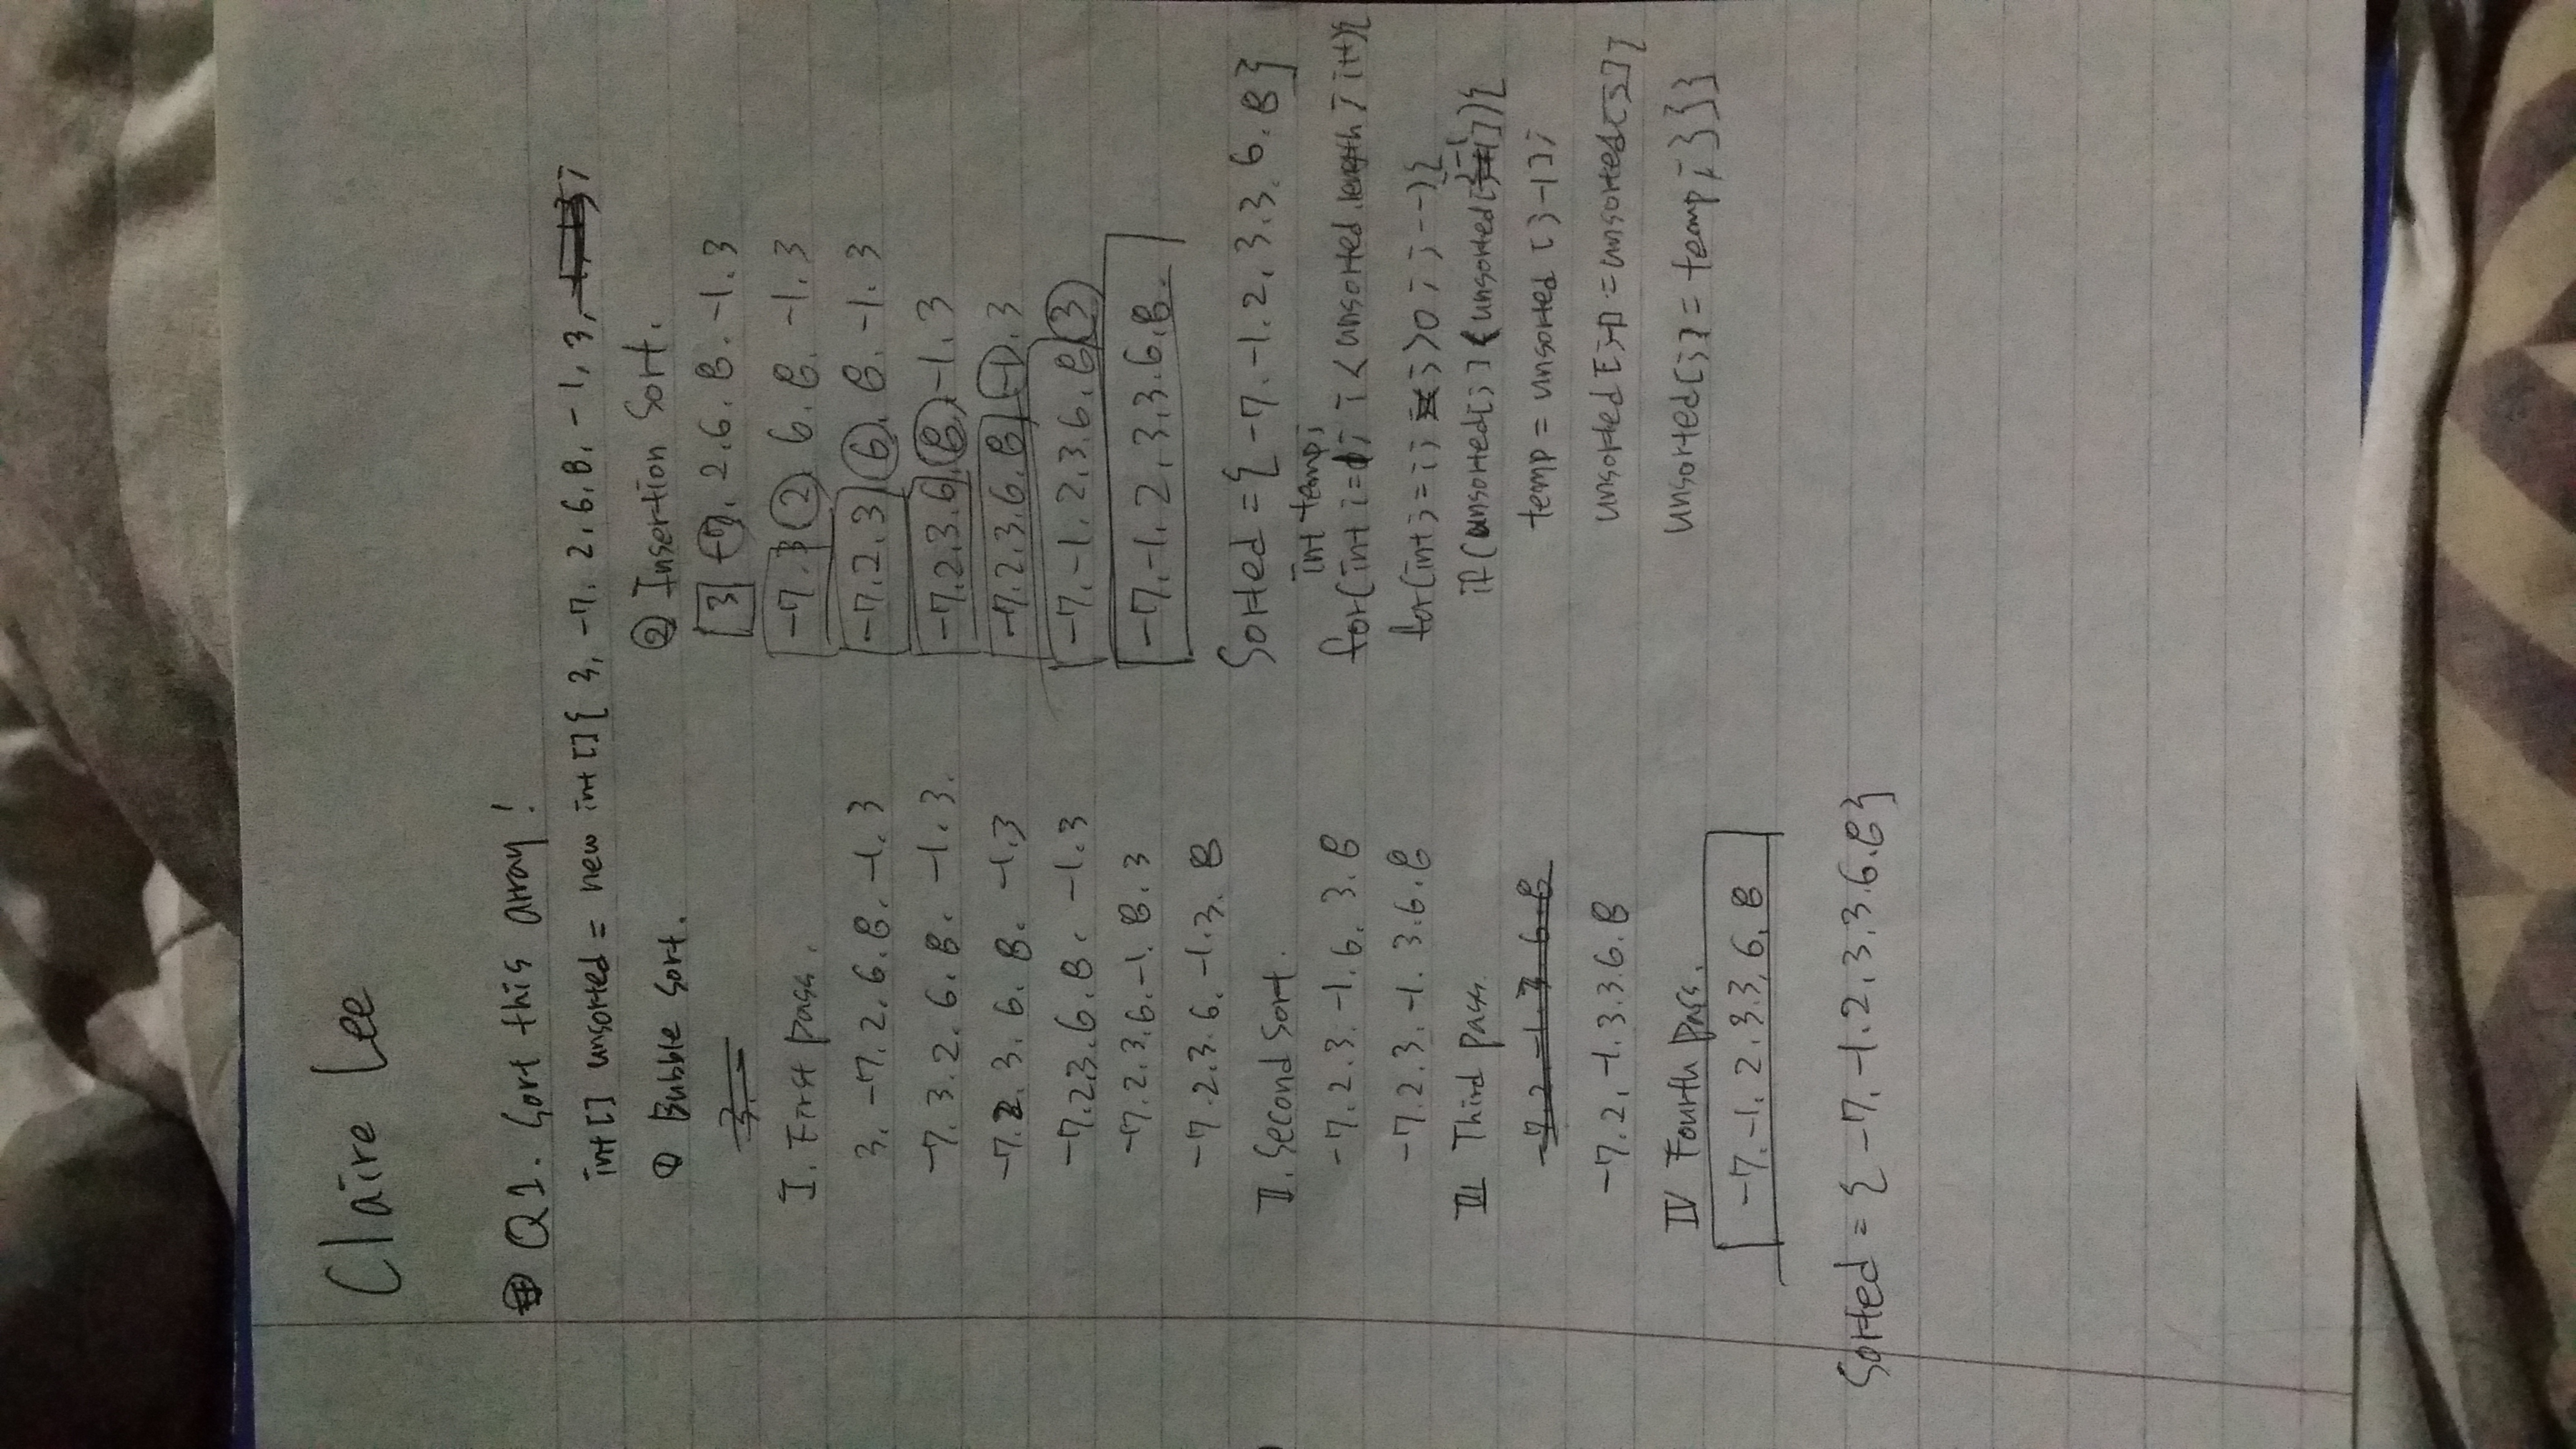 Claire Lee
Q1. Sort this array!
int[] unsorted = new int[]{ 3, -7, 2, 6, 8, -1, 3, ;
① Bubble Sort.
3.
I. First pass.
3. -7. 2. 6. 8. -1. 3
-7. 3. 2. 6. 8. -1. 3.
-7. 2. 3. 6. 8. -1. 3
-7. 2. 3. 6. 8. -1. 3
-7. 2. 3. 6. -1. 8. 3
-7. 2. 3. 6. -1. 3. 8
II. Second Sort.
-7. 2. 3. -1. 6. 3. 8
-7. 2. 3. -1. 3. 6. 8
III Third pass.
-7. 2 -1. 3 6. 8
-7. 2, -1. 3. 3. 6. 8
IV Fourth pass.
-7. -1. 2. 3. 3, 6. 8
Sorted = { -7. -1. 2. 3. 3. 6. 8}
② Insertion Sort.
3 -7. 2. 6. 8. -1. 3
-7. 3 2 6. 8. -1. 3
-7. 2. 3 6. 8. -1. 3
-7. 2. 3. 6. 8. -1. 3
-7. 2. 3. 6. 8 -1. 3
-7. -1. 2. 3. 6. 8 3
-7. -1. 2, 3, 3. 6. 8.
Sorted = { -7. -1. 2, 3. 3. 6. 8}
int temp;
for(int i=1; i < unsorted.length ; i++){
for(int j = i; j>0 ; j--){
if (unsorted[j] < unsorted[j-1]){
temp = unsorted [j-1];
unsorted [j-1] = unsorted[j];
unsorted[j] = temp; }}}